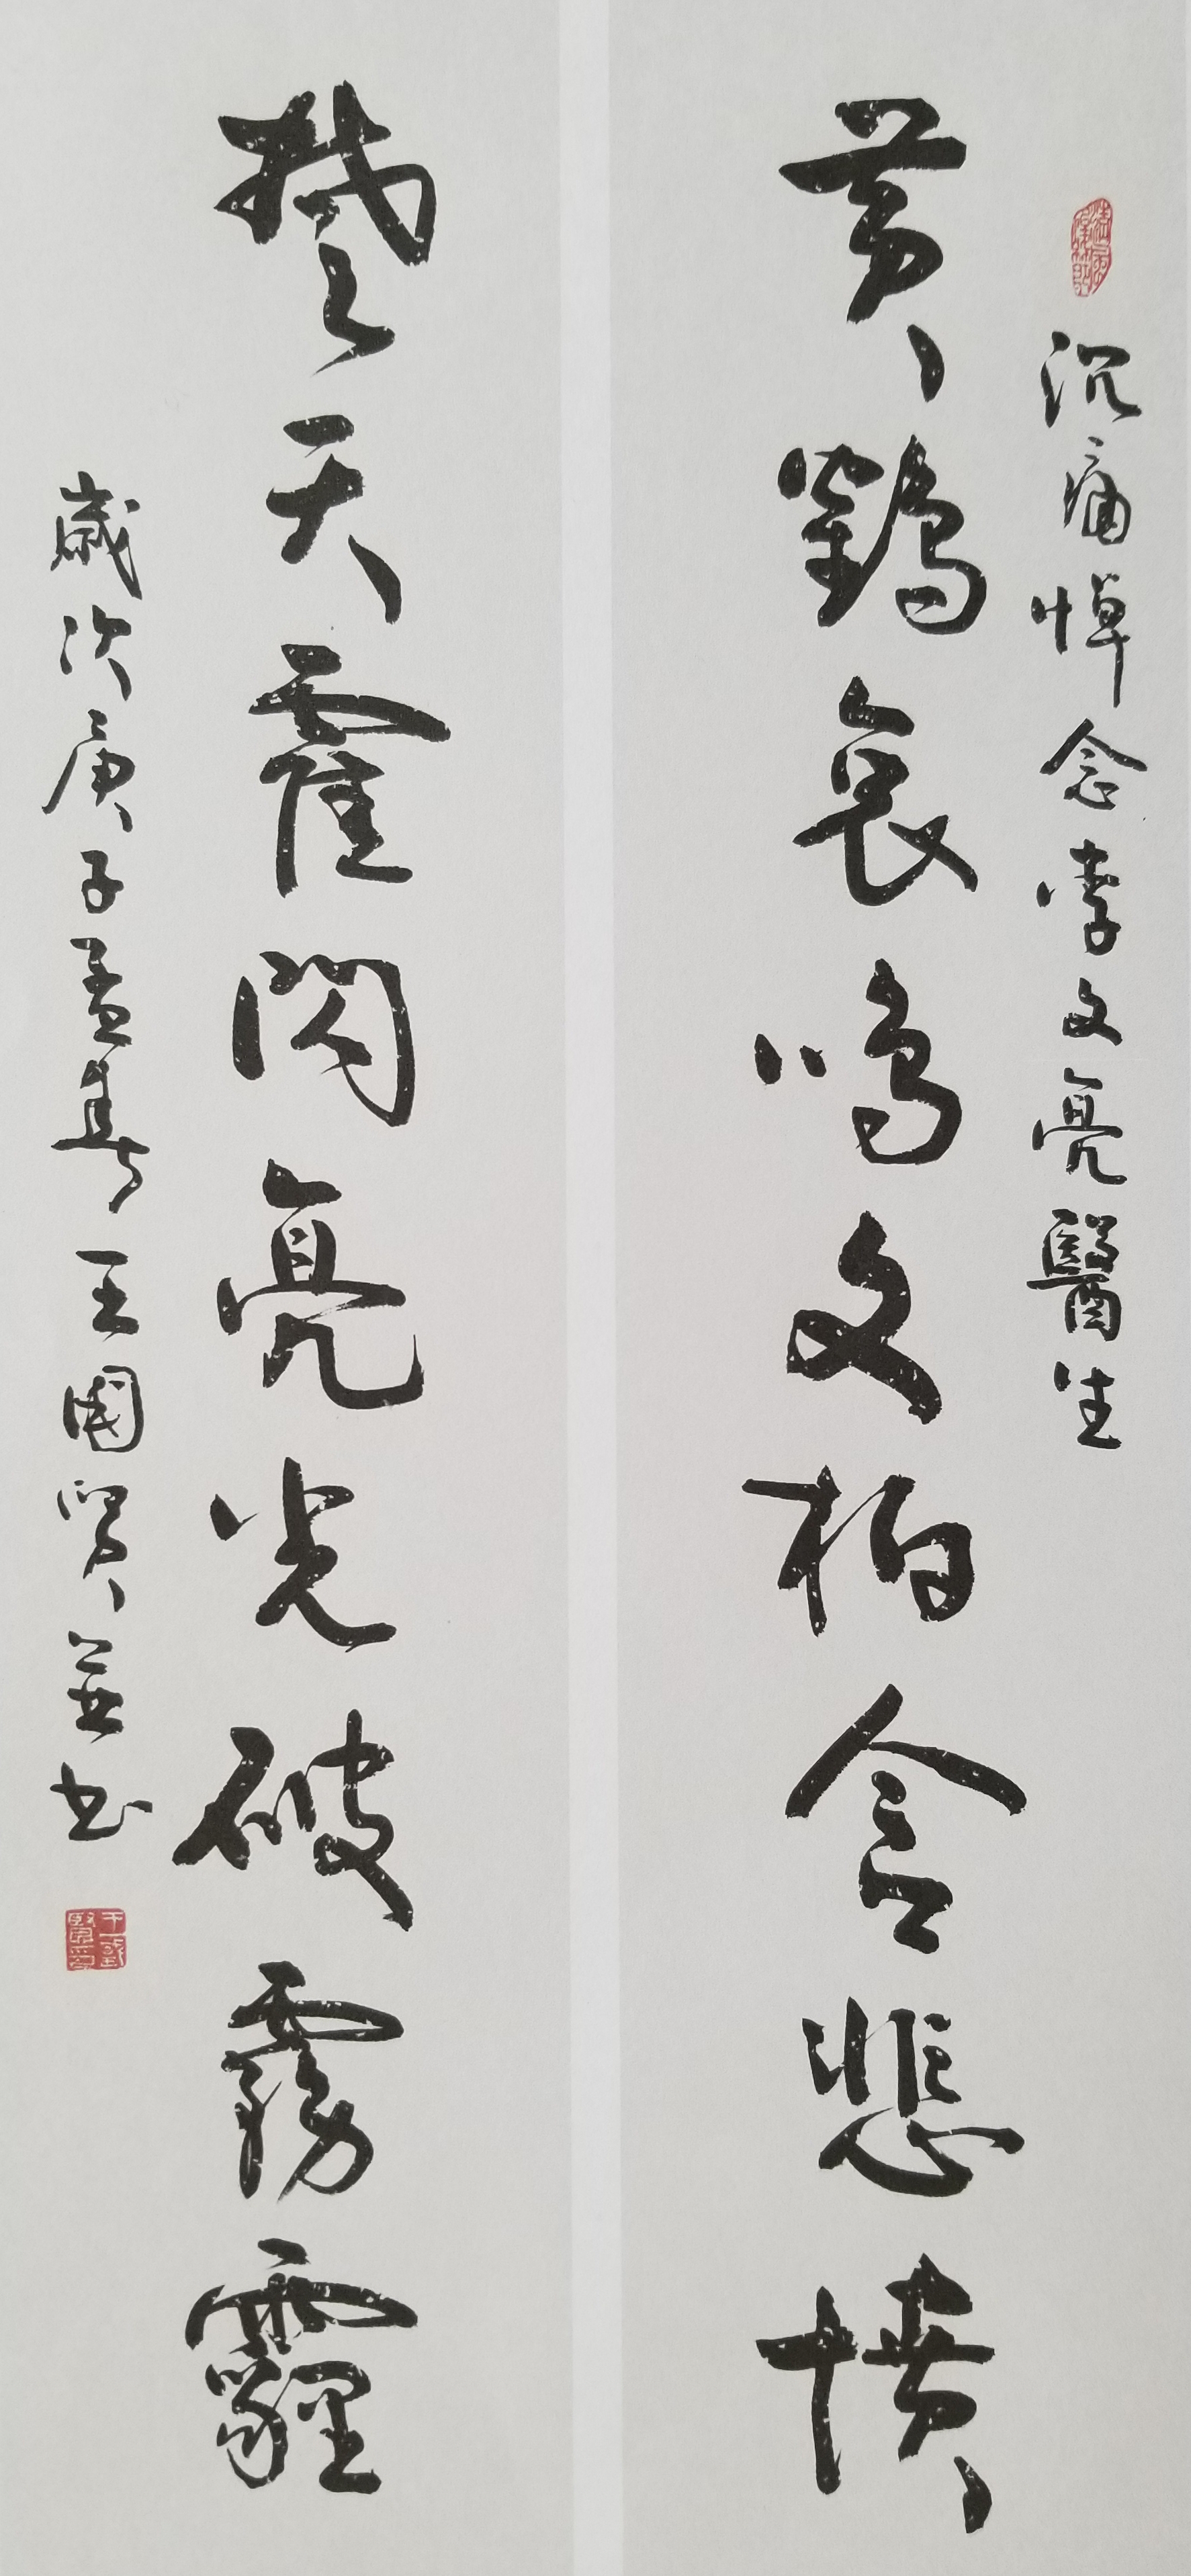 沉痛悼念李文亮醫生
黄鶴哀鳴文柏含悲憤
楚天霍閃亮光破霧霾
歲次庚子孟春王國賢並书